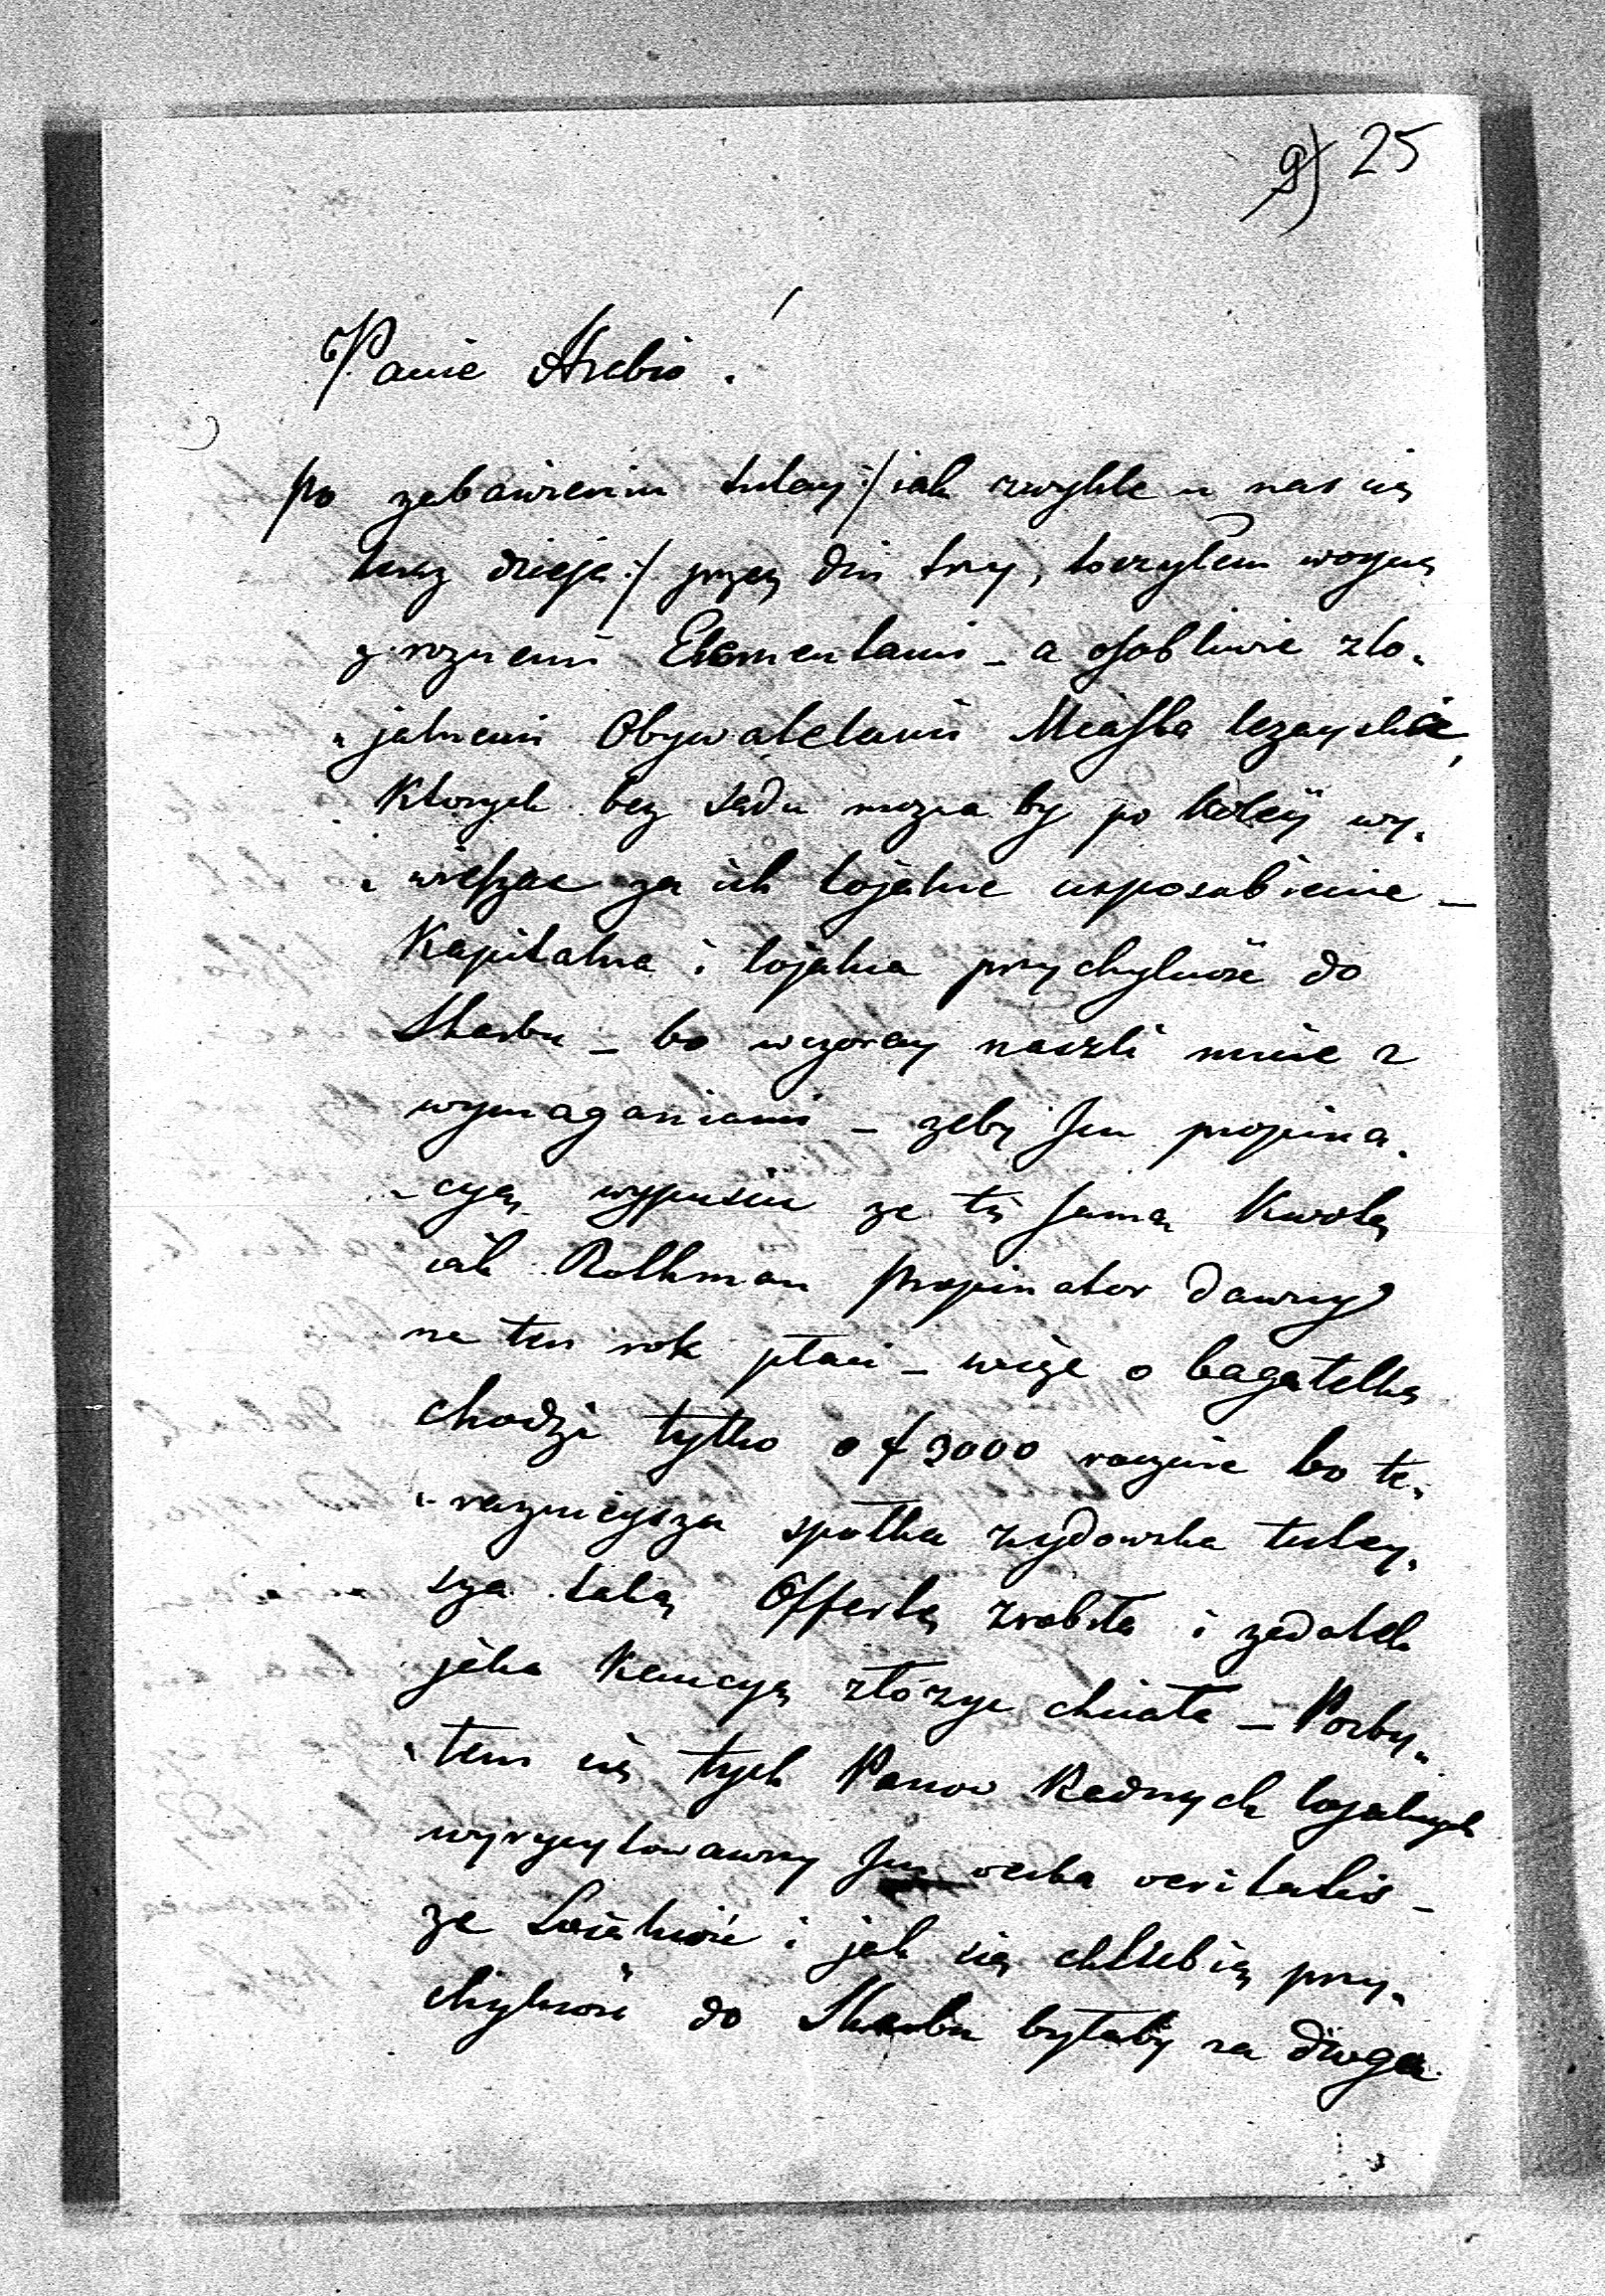 9) 25
Panie Hrabio!
po zabawieniu tutay :/ iak zwykle u nas się
teraz dzieje :/ przez dni trzy, toczyłem woynę
z roznemi Elementami – a osobliwie zło-
jalnemi Obywatelami Miasta
Ktorych bez sądu mozna by po koleÿ wy-
wieszac za ich lojalne usposobienie –
Kapitalna i lojalna przychylnośc do
Skarbu – bo wczoray naszli mnie z
wymaganiami – zeby Jm propina-
cyą wypuscic za tę samą Kwotę
iak Rothman propinator dawny
na ten rok płaci – więc o bagatelkę
chodzi tylko o f 3000 rocznie bo te-
raznieysza społka zydowska tutey-
sza taką Offertę zrobiła i zadatek
jako Kaucyą złożyc chciała – Pozby-
łem się tych Panow Radnych lojalnych
wyrzytowawszy Jm verba veritatis –
ze Lojalność i jak się chlubią przy-
chylność do Skarbu byłaby za droga